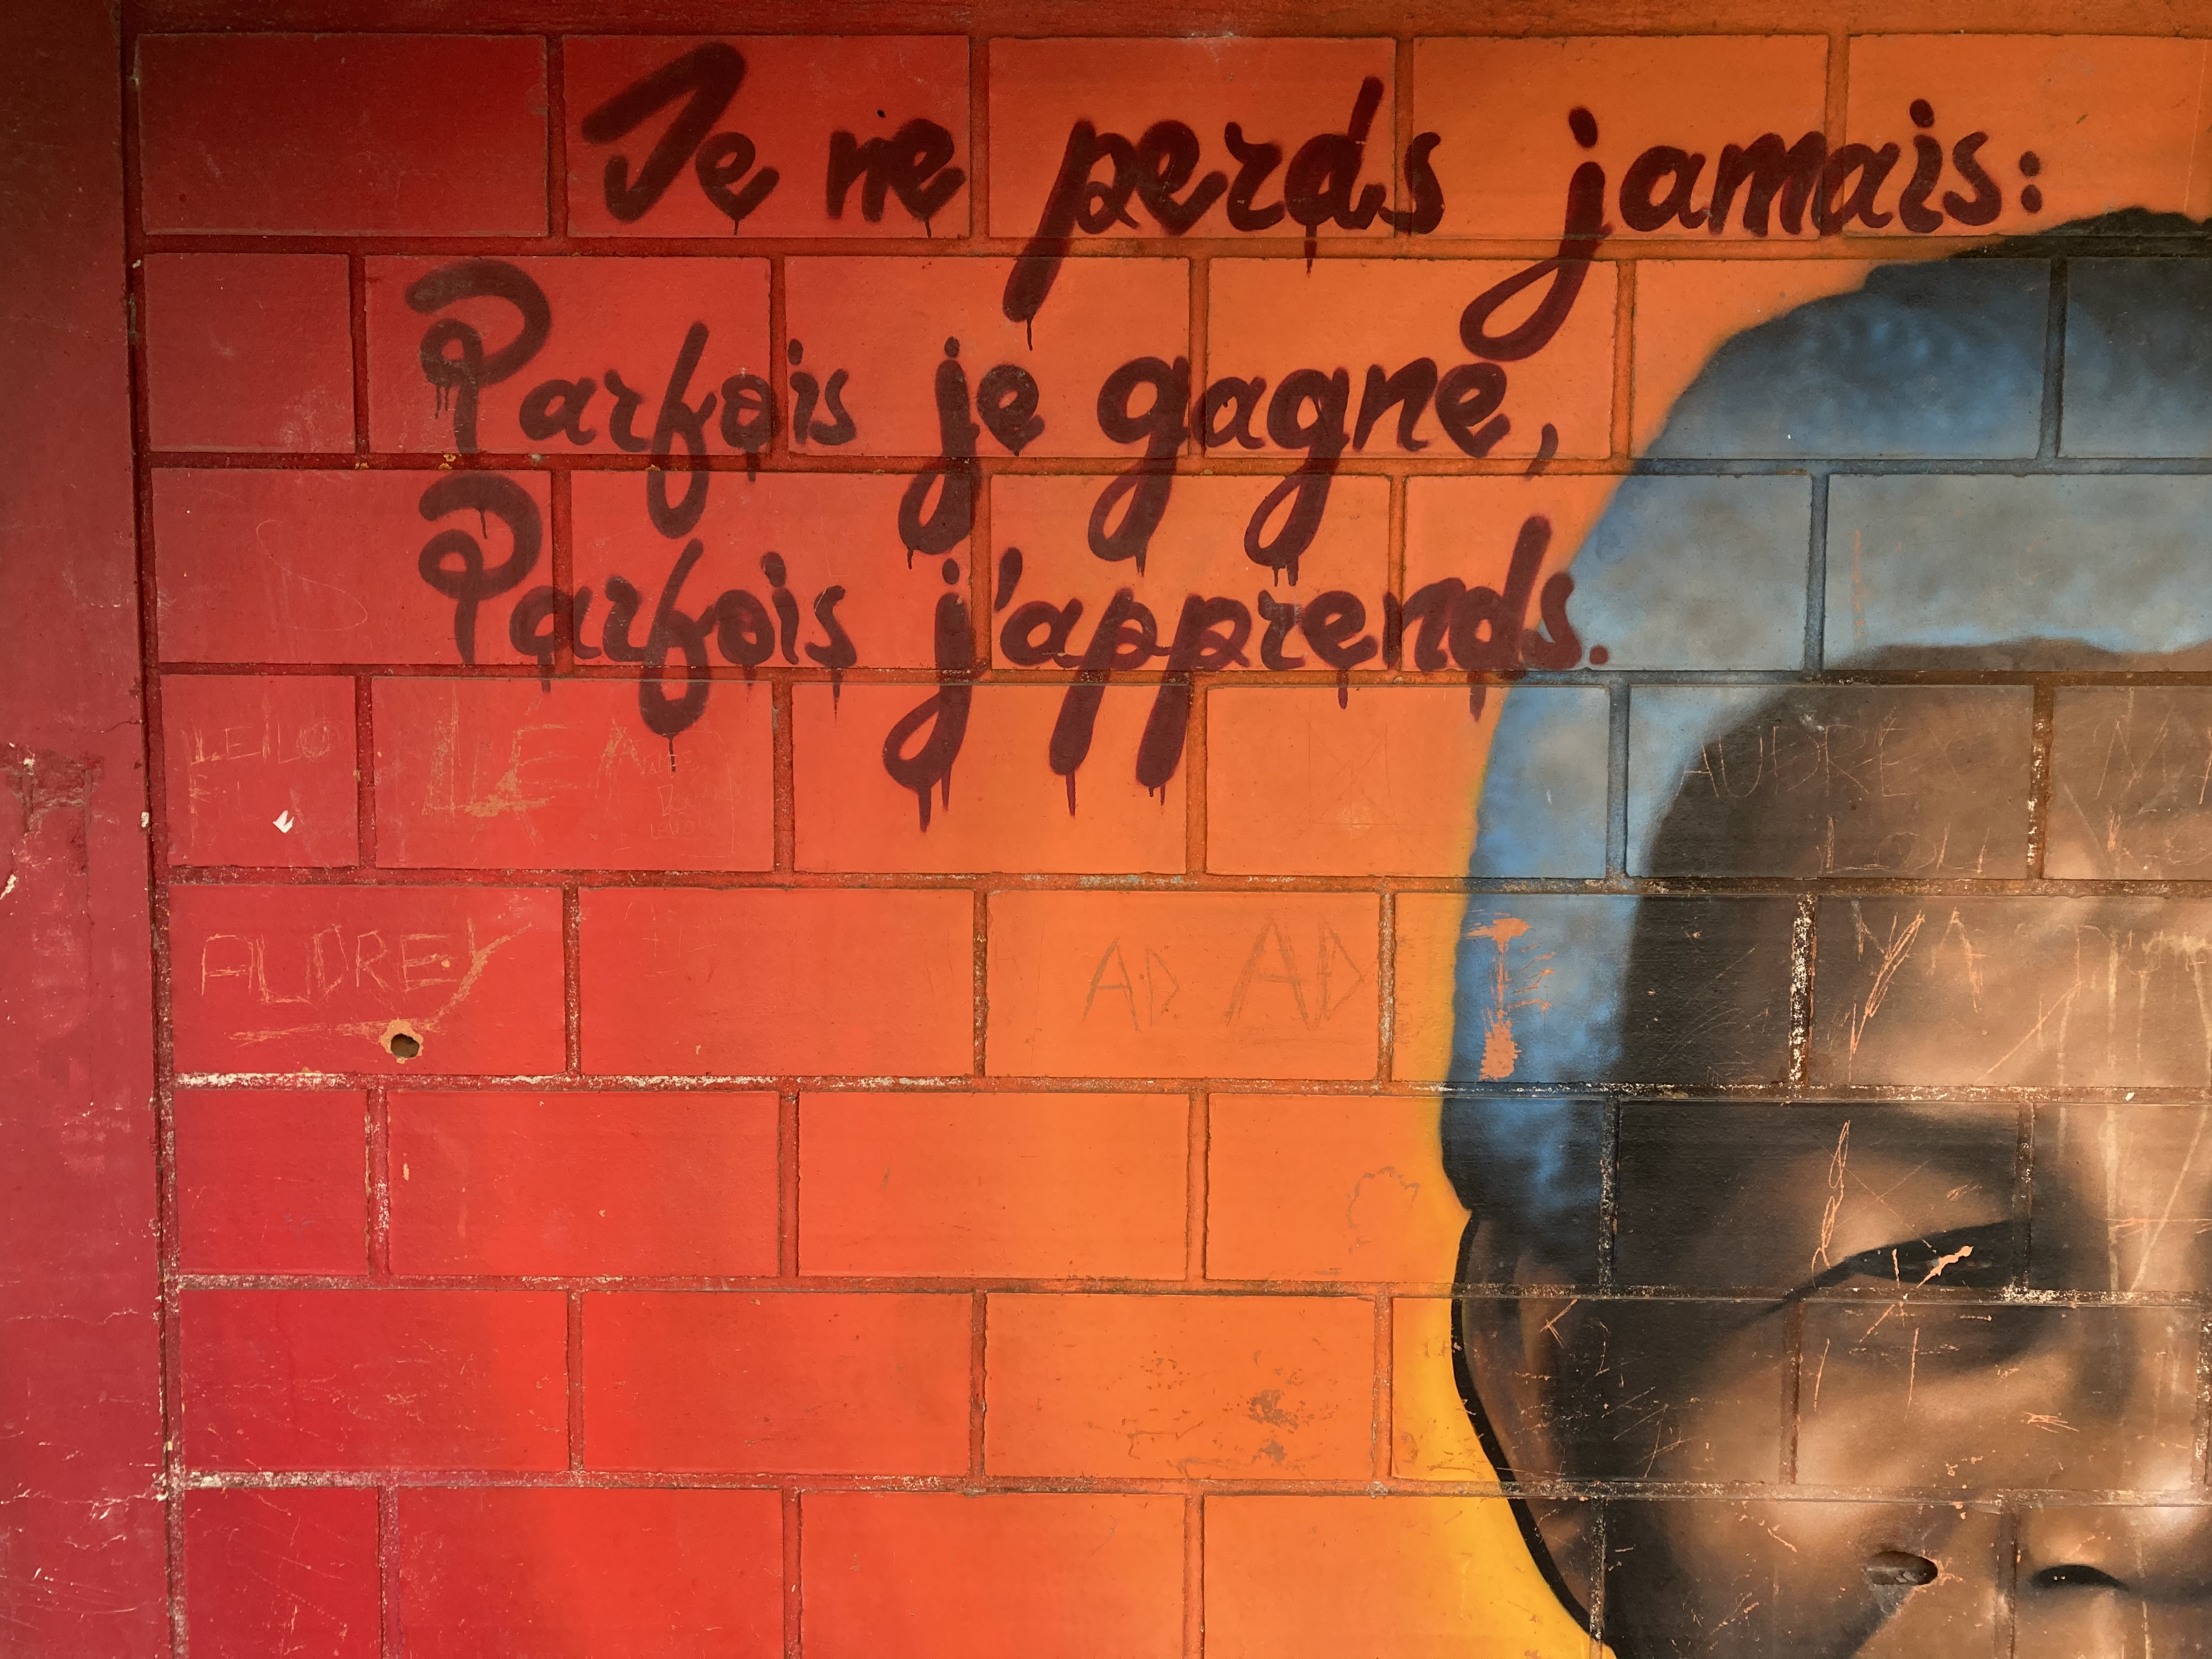 Je ne perds jamais:
Parfois je gagne,
Parfois j'apprends.
LEILO
LÉA
AUDRE
LOU
AUDREY
AD AD